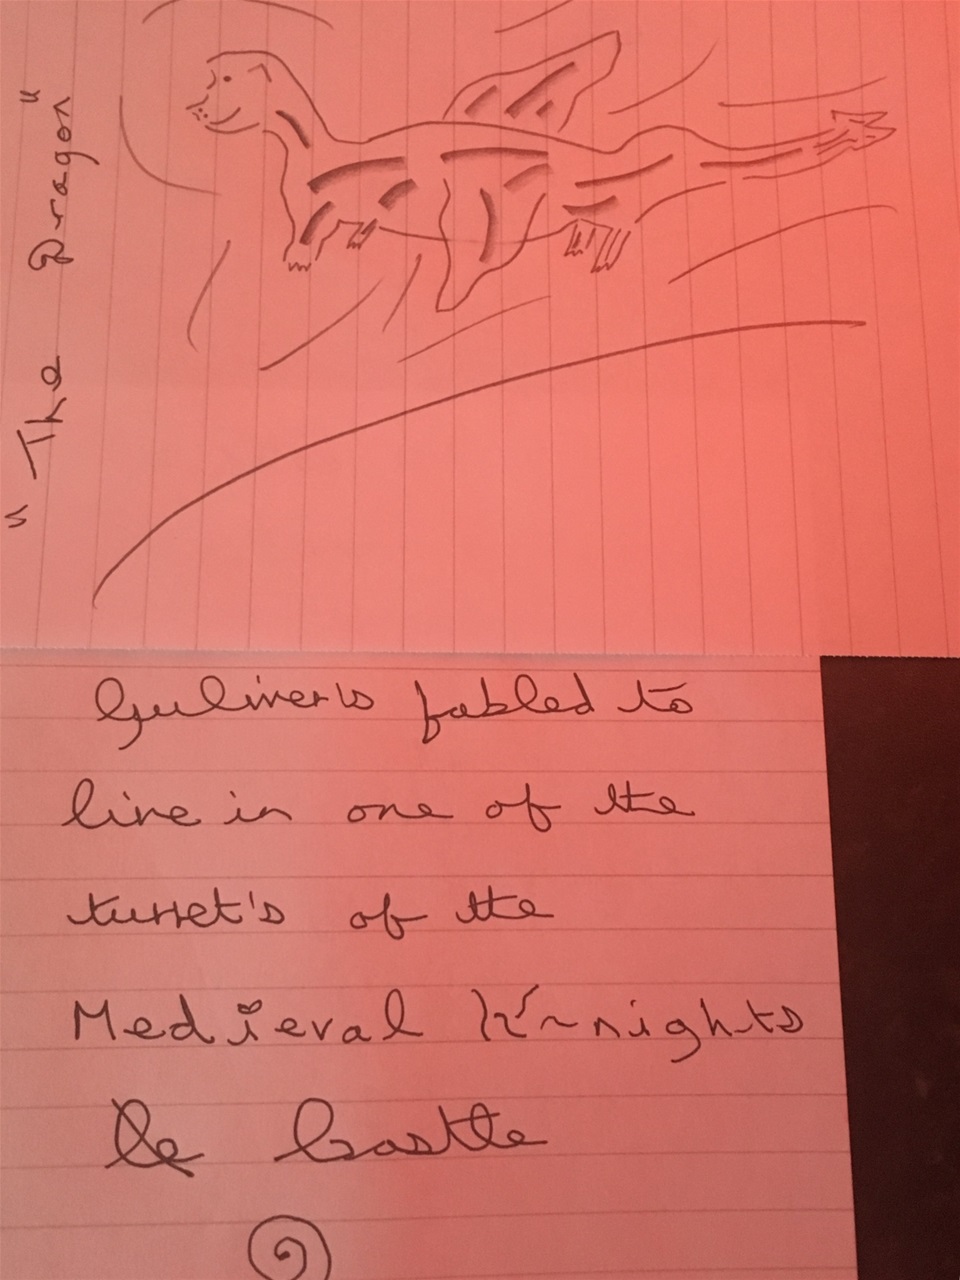 "The Dragon"
Guliver's fabled to
live in one of the
turret's of the
Medieval Knights
Castle